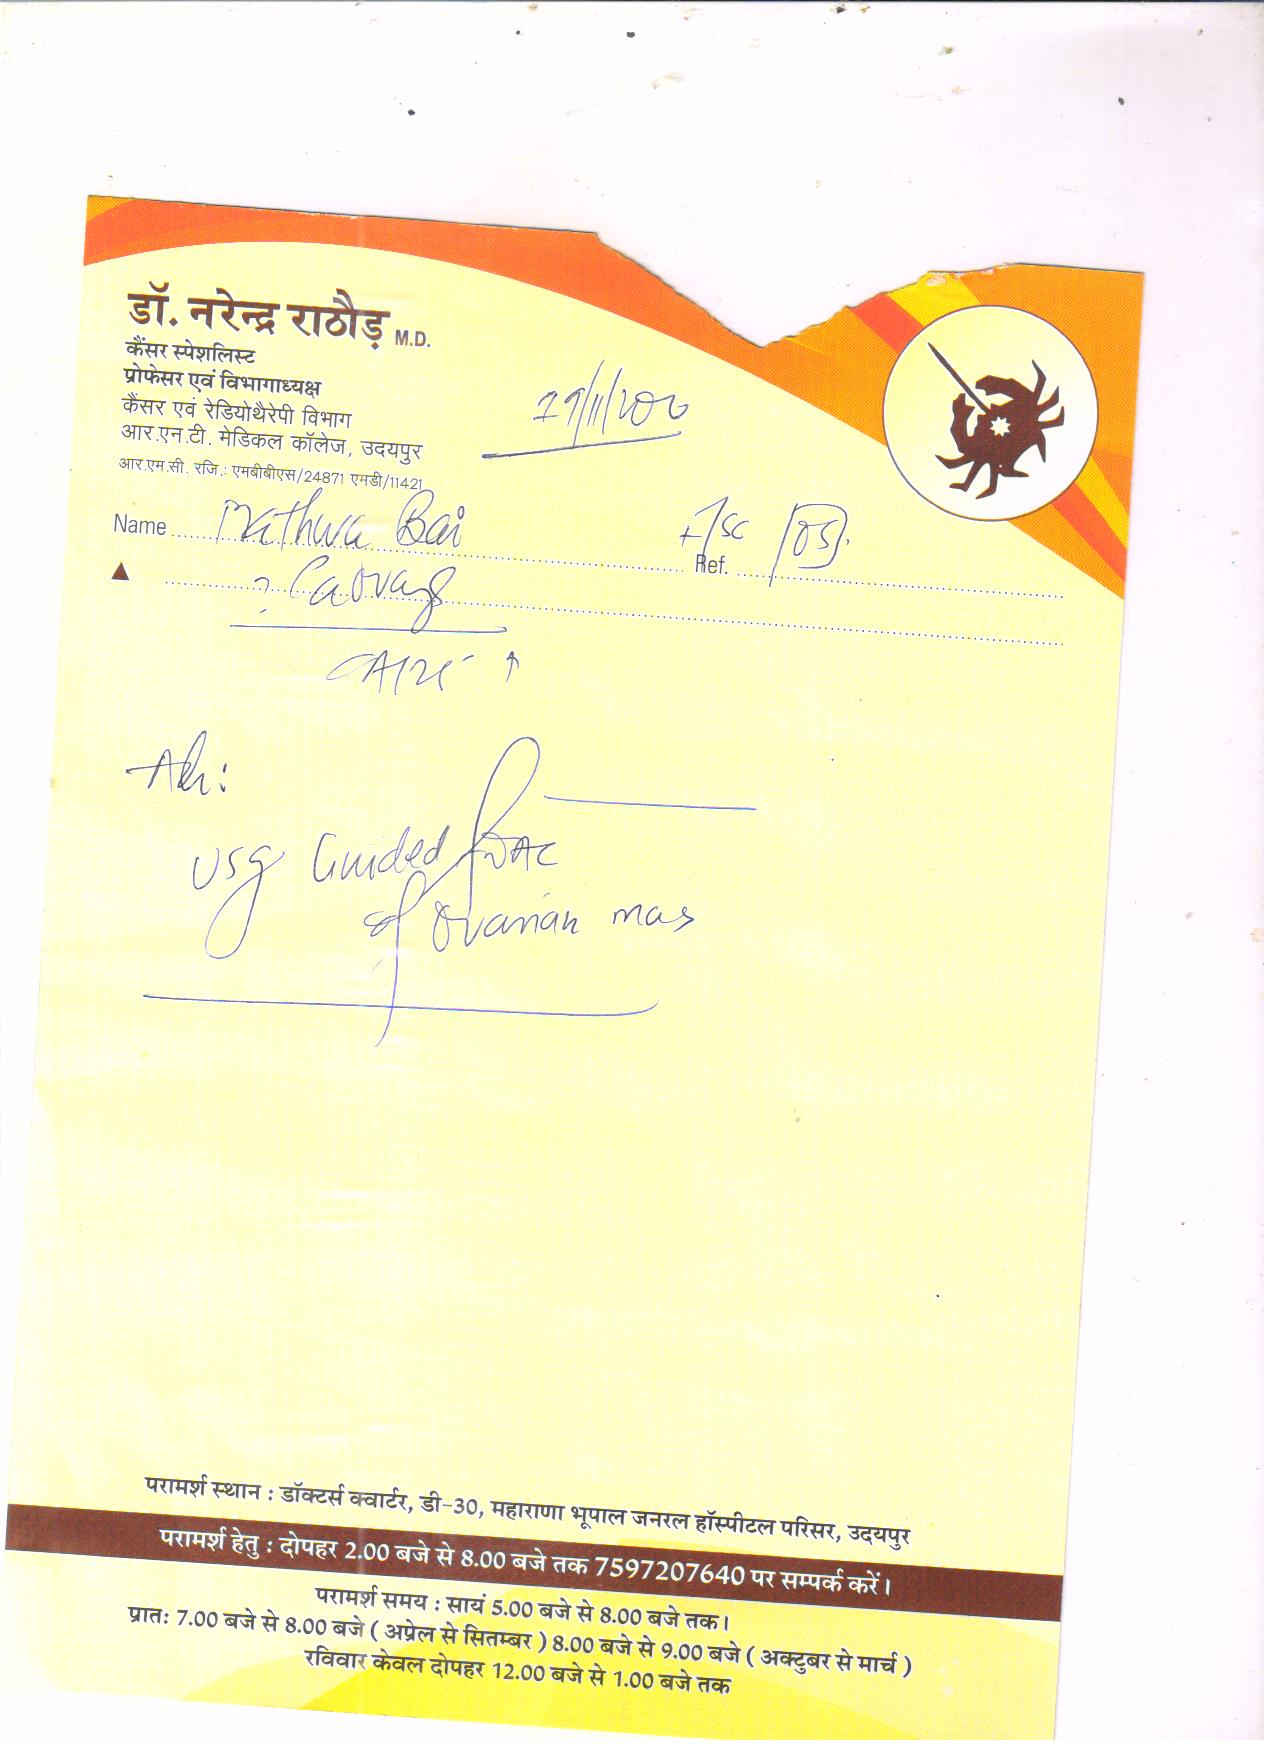 डॉ. नरेन्द्र राठौड़ M.D.
कैंसर स्पेशलिस्ट
प्रोफेसर एवं विभागाध्यक्ष
कैंसर एवं रेडियोथैरेपी विभाग
आर.एन.टी. मेडिकल कॉलेज, उदयपुर
आर.एम.सी. रजि.: एमबीबीएस/24871 एमडी/11421
Name Bai
Ref.
? Ca Ovary
↑
Adv:
USG Guided FNAC
of Ovarian mass
परामर्श स्थान : डॉक्टर्स क्वार्टर, डी-30, महाराणा भूपाल जनरल हॉस्पीटल परिसर, उदयपुर
परामर्श हेतु : दोपहर 2.00 बजे से 8.00 बजे तक 7597207640 पर सम्पर्क करें।
परामर्श समय : सायं 5.00 बजे से 8.00 बजे तक।
प्रातः 7.00 बजे से 8.00 बजे ( अप्रेल से सितम्बर ) 8.00 बजे से 9.00 बजे ( अक्टुबर से मार्च )
रविवार केवल दोपहर 12.00 बजे से 1.00 बजे तक